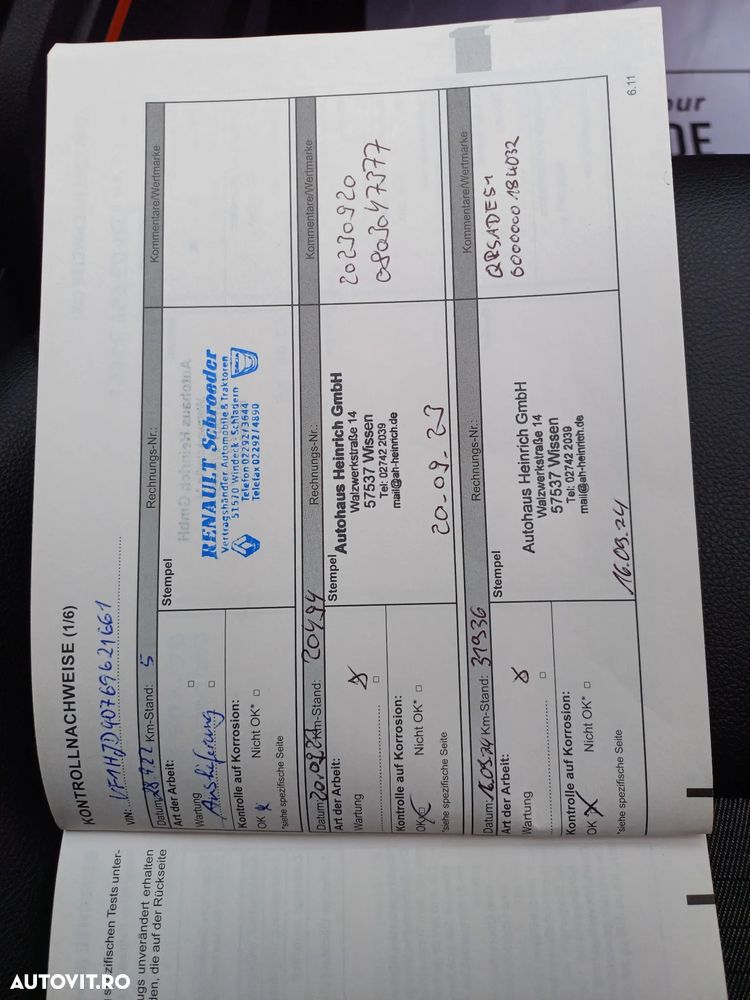 KONTROLLNACHWEISE (1/6)
VIN: VF1HJD40769621661
Datum: 28.7.22 Km-Stand: 5 Rechnungs-Nr.: Kommentare/Wertmarke
Art der Arbeit:
Wartung □
Auslieferung □
Kontrolle auf Korrosion:
OK Nicht OK* □
*siehe spezifische Seite
Stempel
RENAULT Schroeder
Vertragshändler Automobile & Traktoren
51570 Windeck - Schladern
Telefon 02292/3644
Telefax 02292/4890
DACIA
Datum: 20.09.23 Km-Stand: 20494 Rechnungs-Nr.: Kommentare/Wertmarke
Art der Arbeit:
Wartung
□
Kontrolle auf Korrosion:
OK Nicht OK* □
*siehe spezifische Seite
Stempel
Autohaus Heinrich GmbH
Walzwerkstraße 14
57537 Wissen
Tel: 02742 2039
mail@ah-heinrich.de
20.09.23
20230920
0803047377
Datum: 16.09.24 Km-Stand: 31936 Rechnungs-Nr.: Kommentare/Wertmarke
Art der Arbeit:
Wartung
□
Kontrolle auf Korrosion:
OK Nicht OK* □
*siehe spezifische Seite
Stempel
Autohaus Heinrich GmbH
Walzwerkstraße 14
57537 Wissen
Tel: 02742 2039
mail@ah-heinrich.de
16.09.24
QRSADES1
0000000184032
6.11
spezifischen Tests unter-
ugs unverändert erhalten
den, die auf der Rückseite
our
DE
AUTOVIT.RO